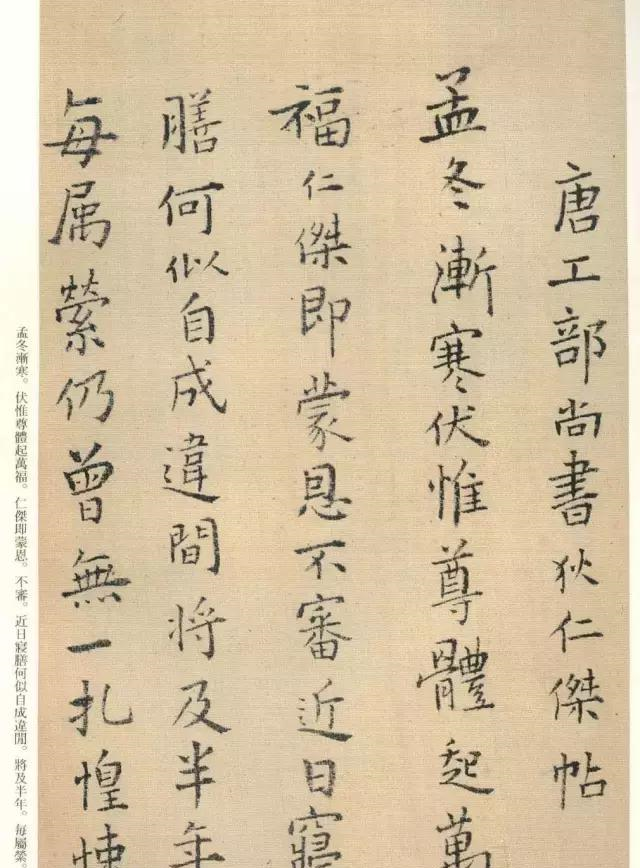 唐工部尚書狄仁傑帖
孟冬漸寒伏惟尊體起萬
福仁傑即蒙恩不審近日寢
膳何似自成違間將及半年
每属縈仍曾無一札惶悚
孟冬漸寒。伏惟尊體起萬福。仁傑即蒙恩。不審。近日寢膳何似自成違間。將及半年。每屬縈。